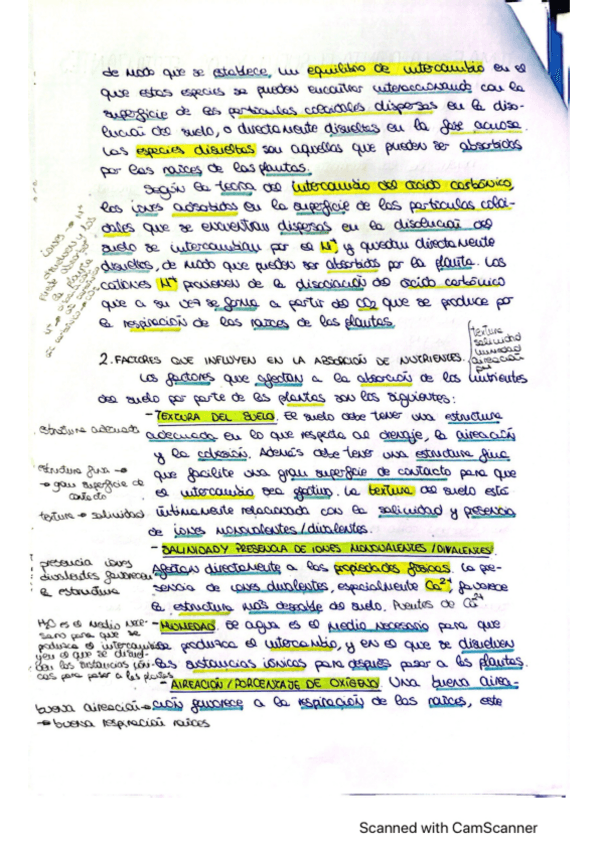 de modo que se establece, un equilibrio de intercambio en el
que estas especies se pueden encontrar interaccionando con la
superficie de las partículas coloidales dispersas en la diso-
lución del suelo, o directamente disueltas en la fase acuosa.
Las especies disueltas son aquellas que pueden ser absorbidas
por las raíces de las plantas.
Según la teoría del intercambio del ácido carbónico,
los iones adsorbidos en la superficie de las partículas coloi-
dales que se encuentran dispersas en la disolución del
suelo se intercambian por el H⁺ y quedan directamente
disueltos, de modo que pueden ser absorbidos por la planta. Los
cationes H⁺ provienen de la disociación del ácido carbónico
que a su vez se forma a partir del CO₂ que se produce por
la respiración de las raíces de las plantas.
iones → H⁺
2. FACTORES QUE INFLUYEN EN LA ABSORCIÓN DE NUTRIENTES.
textura
salinidad
humedad
aireación
pH
Los factores que afectan a la absorción de los nutrientes
del suelo por parte de las plantas son los siguientes:
- TEXTURA DEL SUELO. El suelo debe tener una estructura
adecuada en lo que respecta al drenaje, la aireación
y la cohesión. Además debe tener una estructura fina
que facilite una gran superficie de contacto para que
el intercambio sea efectivo. La textura del suelo está
íntimamente relacionada con la salinidad y presencia
de iones monovalentes/divalentes.
estructura adecuada
estructura fina →
→ gran superficie de
contacto
textura → salinidad
- SALINIDAD Y PRESENCIA DE IONES MONOVALENTES/DIVALENTES.
Afectan directamente a las propiedades físicas. La pre-
sencia de iones divalentes, especialmente Ca²⁺, favorece
la estructura más deseable del suelo. Puentes de Ca²⁺
presencia iones
divalentes favorecen
la estructura
- HUMEDAD. El agua es el medio necesario para que
se produzca el intercambio, y en el que se disuelven
las sustancias iónicas para después pasar a las plantas.
H₂O es el medio nece-
sario para que se
produzca el intercambio
y en el que se disuel-
ven las sustancias ióni-
cas para pasar a las plantas
- AIREACIÓN/PORCENTAJE DE OXÍGENO. Una buena airea-
ción favorece a la respiración de las raíces, este
buena aireación →
→ buena respiración raíces
Scanned with CamScanner